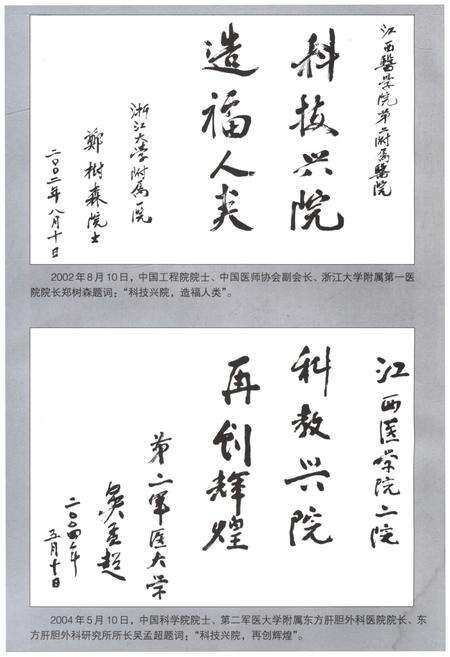 江西醫学院第二附属醫院
科技兴院
造福人类
浙江大学附属一院
鄭树森院士
二〇〇二年八月十日
2002年8月10日，中国工程院院士、中国医师协会副会长、浙江大学附属第一医
院院长郑树森题词：“科技兴院，造福人类”。
江西医学院二院
科教兴院
再创辉煌
第二军医大学
吴孟超
二〇〇四年
五月十日
2004年5月10日，中国科学院院士、第二军医大学附属东方肝胆外科医院院长、东
方肝胆外科研究所所长吴孟超题词：“科技兴院，再创辉煌”。